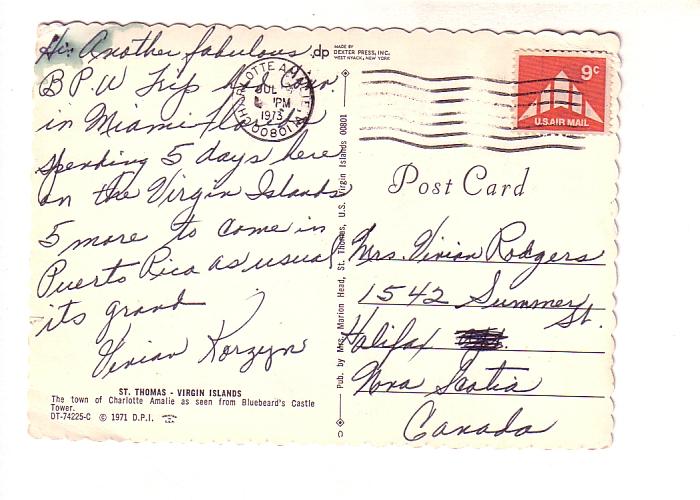 Hi: Another fabulous
B.P.W trip
in Miami
spending 5 days here
on the Virgin Islands
5 more to come in
Puerto Rico as usual
its grand
Vivian Korzyn
ST. THOMAS - VIRGIN ISLANDS
The town of Charlotte Amalie as seen from Bluebeard's Castle
Tower.
DT-74225-C © 1971 D.P.I.
dp
MADE BY
DEXTER PRESS, INC.
WEST NYACK, NEW YORK
CHARLOTTE AMALIE
JUL
PM
1973
00801
Pub. by Mrs. Marion Head, St. Thomas, U.S. Virgin Islands 00801
9c
U.S. AIR MAIL
Post Card
Mrs. Vivian Rodgers
1542 Summer
St.
Halifax
Nova Scotia
Canada